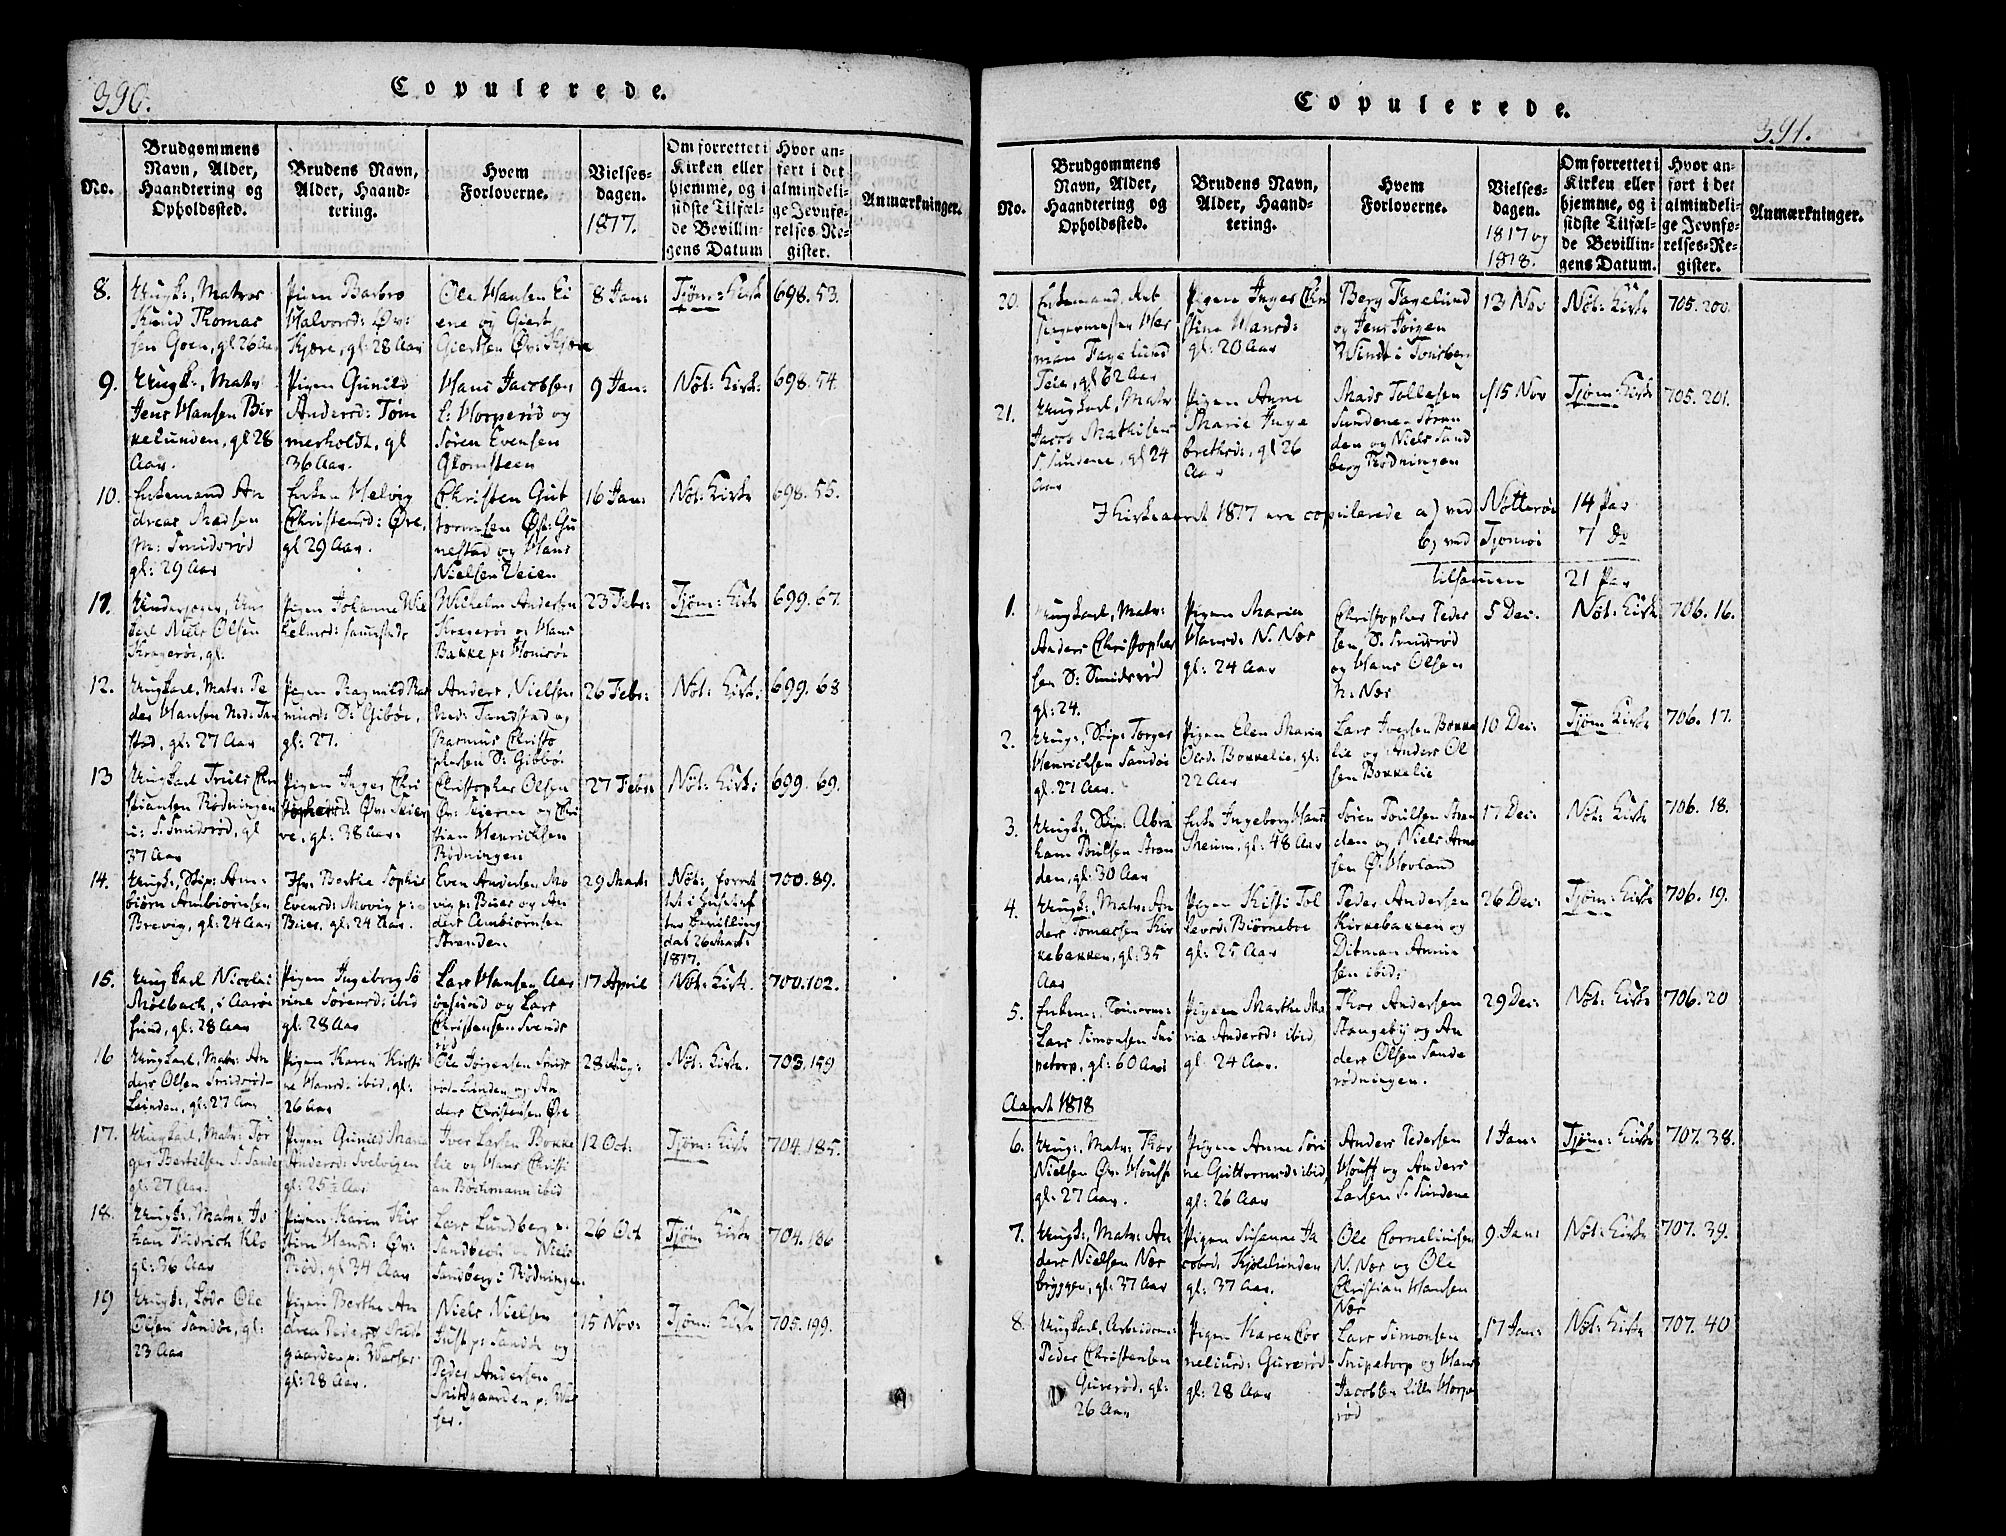 390.
Copulerede.
No.
Brudgommens
Navn, Alder,
Haandtering og
Opholdssted.
Brudens Navn,
Alder, Haand-
tering.
Hvem
Forloverne.
Vielses-
dagen.
1817.
Om forrettet i
Kirken eller
hjemme, og i
sidste Tilfæl-
de Bevillin-
gens Datum
Hvor an-
ført i det
almindeli-
ge Jevnfø-
relses-Re-
gister.
Anmærkninger.
8.
Ungk:, Matros
Knud Thomas
sen Goen, gl 26 Aar
Pigen Barbro
Halvorsd: Øv:
Kjære, gl: 28 Aar
Ole Hansen Ei
ene og Giert
Giertsen Øv: Kjære
8 Jan:
Tjøm: Kirk
698. 53.
9.
Ungk:, Matr
Jens Hansen Bir
kelunden, gl 28
Aar.
Pigen Gunild
Andersd: Tøm
merholdt, gl
36 Aar.
Hans Jacobsen
l: Horperød og
Søren Evensen
Glomsteen
9 Jan:
Nöt: Kirk:
698. 54.
10.
Enkemand An
dreas Madsen
M: Smidsrød
gl: 29 Aar
Enken Helvig
Christensd: Øre,
gl 29 Aar.
Christen Gut
tormsen Øst: Gu
nestad og Hans
Nielsen Veien
16 Jan:
Nöt: Kirke
698. 55.
11.
Underjæger, Un
karl Niels Olsen
Kragerøe, gl:
Pigen Johanne Wil
helmsd:
Wilhelm Andersen
Kragerøe og Hans
Bakke p:
23 Febr:
Tjøm: Kirk
699. 67.
12.
Ungkarl, Matr: Pe
der Hansen Ned: Tan
stad, gl: 27 Aar
Pigen Ragnild Ras
musd: S: Gibøe,
gl: 27.
Anders Nielsen
Ned: Tandstad og
Rasmus Christo
phersen S: Gibbø:
26 Febr:
Nöt: Kirk:
699. 68
13
Ungkarl Truls Chri
stiansen Rødningen
i: S: Smidsrød, gl
37 Aar
Pigen Inger Chri
stophersd: Øv: Teier
ve, gl: 38 Aar:
Christopher Olsen
Øv: Teierve og Chri
stian Henrichsen
Rødningen
27 Febr:
Nöt: Kirk:
699. 69.
14.
Ungk:, Skip: Am-
biørn Ambiørnsen
Brevig, gl: 24 Aar
Jfr: Berthe Sophie
Evensd: Movig p:
Buer, gl: 24 Aar.
Even Andersen Mo
vig p: Buer og An
ders Ambiørnsen
Stranden
29 Mart:
Nöt: forret
tet i Huset ef
ter Bevilling
dat 26 Marts
1817.
700. 89.
15.
Ungkarl Nicolai
Mølbach, i Aarøe
sund, gl: 28 Aar
Pigen Ingeborg Sø
rine Sørensd: ibid
gl: 28 Aar
Lars Hansen Aar
øesund og Lars
Christensen Svends
rød
17 April
Nöt: Kirk.
700. 102.
16
Ungkarl, Matr: An
ders Olsen Smidsrød-
Leinden, gl: 27 Aar
Pigen Karen Kirsti
ne Hansd: ibid, gl:
26 Aar
Ole Jørgensen Smids
rød Linden og An
ders Christensen Øre
28 Aug:
Nöt: Kirke.
703. 159
17.
Ungkarl, Matr: Tor
ger Bertelsen S: Sande
gl: 27 Aar.
Pigen Gunild Maria
Andersd: Svelvigen
gl: 25½ Aar
Iver Larsen Bokke
lie og Hans Christi
an Böchmann ibid
12 Oct:
Tjøm: Kirk
704. 185.
18.
Ungk:, Matr: Jo
han Fridrich Klo
gl: 36 Aar
Pigen Karen Kir
stine Hansd: Øv:
Rød, gl 34 Aar
Lars Lundberg i
Sandbeck og Niels
Sandberg i Rødningen.
26 Oct
Tjøm Kirk
704. 186
19
Ungk:, Lods Ole
Olsen Sandøe, gl:
23 Aar
Pigen Berthe An
drea Pedersd Midt
gaarden p: Wasser
gl: 28 Aar.
Niels Nielsen
p: Sandøe og
Peder Andersen
Midtgaarden p: Was
ser.
15 Nov:
Tjøm: Kirk
705. 199.
Copulerede.
391.
No.
Brudgommens
Navn, Alder,
Haandtering og
Opholdssted.
Brudens Navn,
Alder, Haand-
tering.
Hvem
Forloverne.
Vielses-
dagen.
1817 og
1818.
Om forrettet i
Kirken eller
hjemme, og i
sidste Tilfæl-
de Bevillin-
gens Datum.
Hvor an-
ført i det
almindeli-
ge Jevnfø-
relses-Re-
gister.
Anmærkninger.
20.
Enkemand,
Her
man Fagelund
Teie, gl 62 Aar
Pigen Inger Chri
stine Hansd:
gl: 20 Aar
Berg Fagelund
og Jens Jørgen
Windt i Tønsberg
13 Nov
Nöt: Kirke
705. 200
21.
Ungkarl, Matr
Jacob Mathisen
S: Sundene, gl 24
Aar
Pigen Anne
Marie Inge
brethsd:, gl 26
Aar
Mads Tollefsen
Sundene
og Niels Sand
berg Rødningen
15 Nov
Tjøm: Kirke
705. 201.
I Kirkeaaret 1817 ere copulerede a) ved Nötterøe 14 Par
b) ved Tjømøe 7 Do
tilsammen 21 Par
1.
Ungkarl, Matr:
Anders Christopher
sen S: Smidsrød
gl: 24.
Pigen Maria
Hansd: N. Næs
gl: 24 Aar
Christopher Peder
sen, S: Smidsrød
og Hans Olsen
N: Næs
5 Dec:
Nöt: Kirk
706. 16.
2.
Ungk:, Skip: Torger
Henrichsen Sandøe
gl: 27 Aar.
Pigen Elen Maria
Olsd: Bokkelie, gl:
22 Aar
Lars Iversen Bokke
lie og Anders Ol
sen Bokkelie
10 Dec:
Tjøm: Kirk
706. 17.
3.
Ungk:, Skip: Abra
ham Poulsen Stran
den, gl: 30 Aar
Enke Ingeborg Hansd
Skeum, gl: 48 Aar
Søren Poulsen Stran
den og Niels Arne
sen Ø: Hovland
17 Dec:
Nöt: Kirk
706. 18.
4.
Ungk:, Matr: An
ders Tomassen Kir
kebakken, gl: 35
Aar
Pigen Kisti Tol
levsd: Biørneboe
gl: 25 Aar
Peder Andersen
Kirkebakken og
Ditman Annin
sen ibid:
26 Dec:
Tjøm: Kirk
706. 19.
5.
Enkem:
Lars Simonsen Sni
petorp, gl: 60 Aar
Pigen Marthe Ma
ria Andersd: ibid,
gl: 24 Aar.
Thor Andersen
Stangebÿ og An
ders Olsen Sande
rødningen.
29 Dec:
Nöt: Kirk
706. 20
Aaret 1818
6.
Ungk:, Matr: Thor
Nielsen Øv: Houff
gl: 27 Aar.
Pigen Anne Søri
ne Guttormsd: ibid,
gl: 26 Aar
Anders Pedersen
Houff og Anders
Larsen S: Sundene
1 Jan:
Tjøm: Kirke
707. 38.
7.
Ungk:, Matr: An
ders Nielsen Næs
bryggen, gl: 37 Aar
Pigen Susanne Ja
cobsd: Kjølelunden
gl: 37 Aar.
Ole Corneliusen
N. Næs og Ole
Christian Hansen
Næs
9 Jan:
Nöt: Kirke
707. 39.
8.
Ungkarl, Arbeidsm:
Peder Christensen
Gurerød, gl:
26 Aar
Pigen Karen Cor
neliusd: Gurerød
gl: 28 Aar
Lars Simonsen
Snipetorp og Hans
Jacobsen lille Horpe
rød
17 Jan:
Nöt: Kirke
707. 40